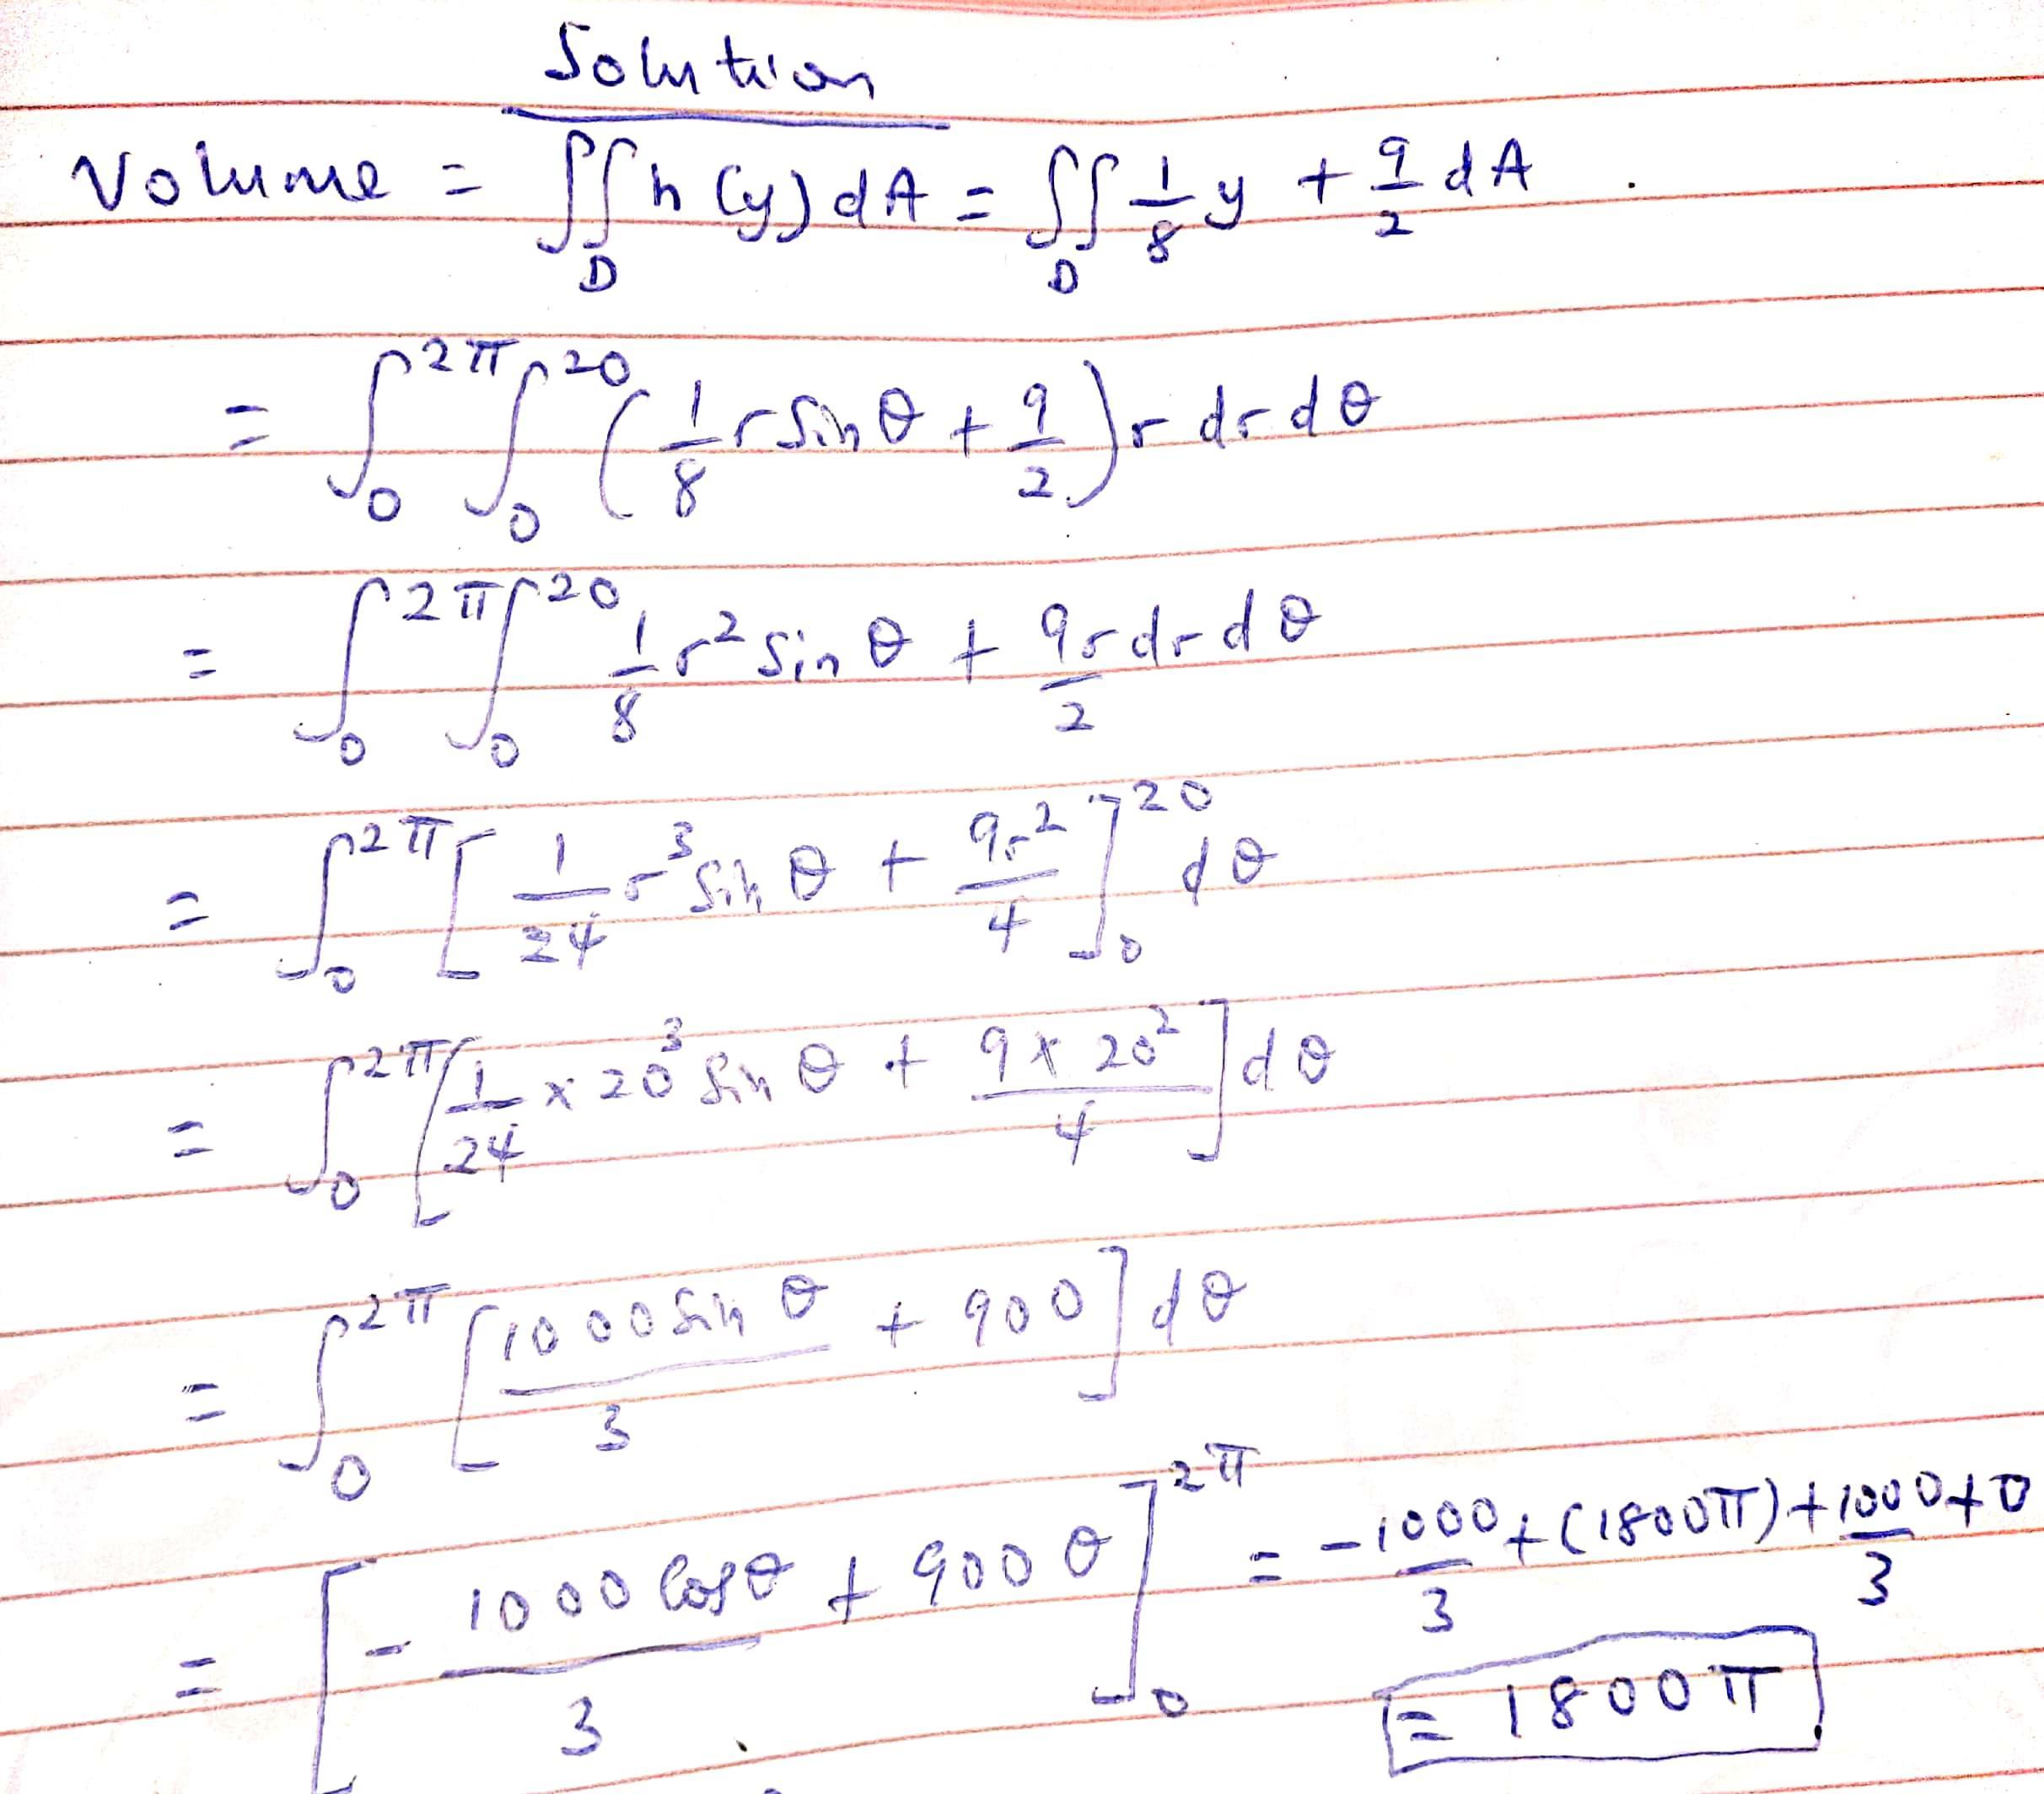 Solution
Volume = ∬_D h(y) dA = ∬_D 1/8 y + 9/2 dA
= ∫_0^{2π} ∫_0^{20} (1/8 r sin θ + 9/2) r dr dθ
= ∫_0^{2π} ∫_0^{20} 1/8 r² sin θ + 9r/2 dr dθ
= ∫_0^{2π} [1/24 r³ sin θ + 9r²/4]_0^{20} dθ
= ∫_0^{2π} [1/24 × 20³ sin θ + 9 × 20²/4] dθ
= ∫_0^{2π} [1000 sin θ/3 + 900] dθ
= [- 1000 cos θ/3 + 900 θ]_0^{2π} = -1000/3 + (1800π) + 1000/3 + 0
= 1800π